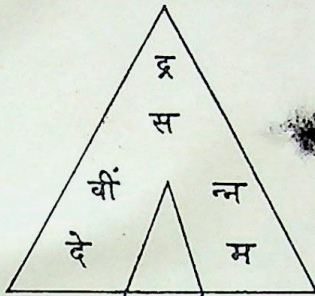 द्र
स
वीं न्न
दे म